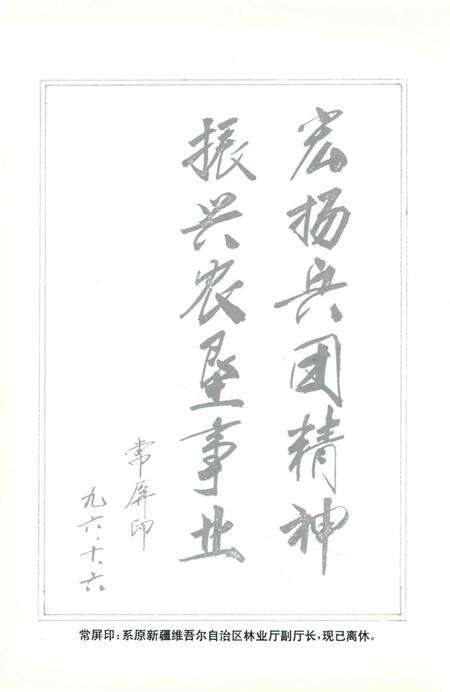 宏扬兵团精神
振兴农垦事业
常屏印
九六·十·六
常屏印：系原新疆维吾尔自治区林业厅副厅长，现已离休。